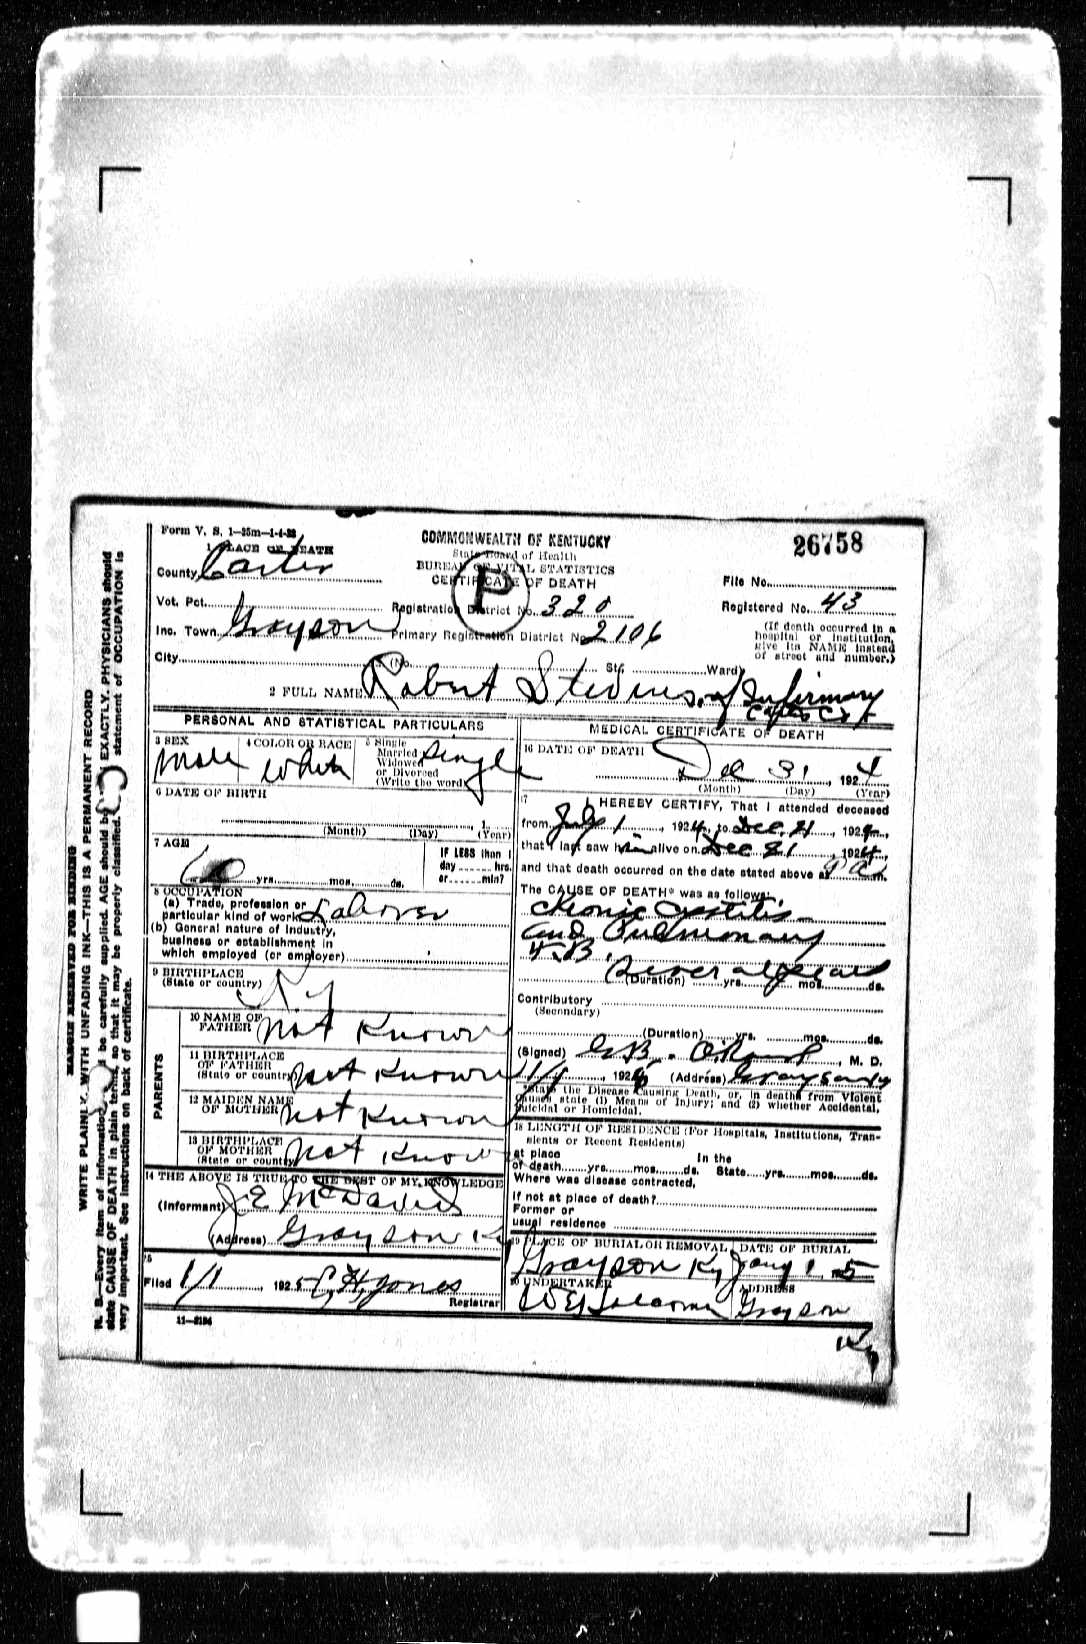 Form V. S. 1-25m-1-4-22
COMMONWEALTH OF KENTUCKY
26758
1 PLACE OF DEATH
State Board of Health
County Carter
BUREAU OF VITAL STATISTICS
CERTIFICATE OF DEATH
P
File No.
Vot. Pct.
Registration District No. 320
Registered No. 43
Inc. Town Grayson
Primary Registration District No 2106
(If death occurred in a
hospital or institution,
give its NAME instead
of street and number.)
City
(No. St. Ward)
2 FULL NAME Robert Stevens, of Infirmary
PERSONAL AND STATISTICAL PARTICULARS
3 SEX
Male
4 COLOR OR RACE
White
5 Single
Married
Widowed
or Divorced
(Write the word)
Single
6 DATE OF BIRTH
1
(Month) (Day) (Year)
7 AGE
60 yrs. mos. ds.
IF LESS than 1
day hrs.
or min?
8 OCCUPATION
(a) Trade, profession or
particular kind of work Laborer
(b) General nature of Industry,
business or establishment in
which employed (or employer)
9 BIRTHPLACE
(State or country) Ky
PARENTS
10 NAME OF
FATHER Not Known
11 BIRTHPLACE
OF FATHER
(State or country) Not Known
12 MAIDEN NAME
OF MOTHER Not Known
13 BIRTHPLACE
OF MOTHER
(State or country) Not Know
14 THE ABOVE IS TRUE TO THE BEST OF MY KNOWLEDGE
(Informant) J E McDavid
(Address) Grayson K
15
Filed 1/1, 1925 C H Jones
Registrar
11-3184
MEDICAL CERTIFICATE OF DEATH
16 DATE OF DEATH
Dec 31, 1924
(Month) (Day) (Year)
17 I HEREBY CERTIFY, That I attended deceased
from July 1, 1924, to Dec. 31, 1924
that I last saw him alive on Dec 31, 1924,
and that death occurred on the date stated above at 9 a m.
The CAUSE OF DEATH* was as follows:
Chronic Cystitis
and Pulmonary
T.B.
Several years
(Duration) yrs. mos. ds.
Contributory
(Secondary)
(Duration) yrs. mos. ds.
(Signed) G.B. , M. D.
1/1, 1925 (Address) Grayson Ky
*State the Disease Causing Death, or, in deaths from Violent
Causes state (1) Means of Injury; and (2) whether Accidental,
Suicidal or Homicidal.
18 LENGTH OF RESIDENCE (For Hospitals, Institutions, Tran-
sients or Recent Residents)
At place In the
of death yrs. mos. ds. State yrs. mos. ds.
Where was disease contracted,
If not at place of death?
Former or
usual residence
19 PLACE OF BURIAL OR REMOVAL
Grayson Ky
DATE OF BURIAL
Jany 1 5
20 UNDERTAKER
ADDRESS
Grayson
Ky
MARGIN RESERVED FOR BINDING
WRITE PLAINLY, WITH UNFADING INK—THIS IS A PERMANENT RECORD
N. B.—Every item of information should be carefully supplied. AGE should be EXACTLY. PHYSICIANS should
state CAUSE OF DEATH in plain terms, so that it may be properly classified. statement of OCCUPATION is
very important. See instructions on back of certificate.